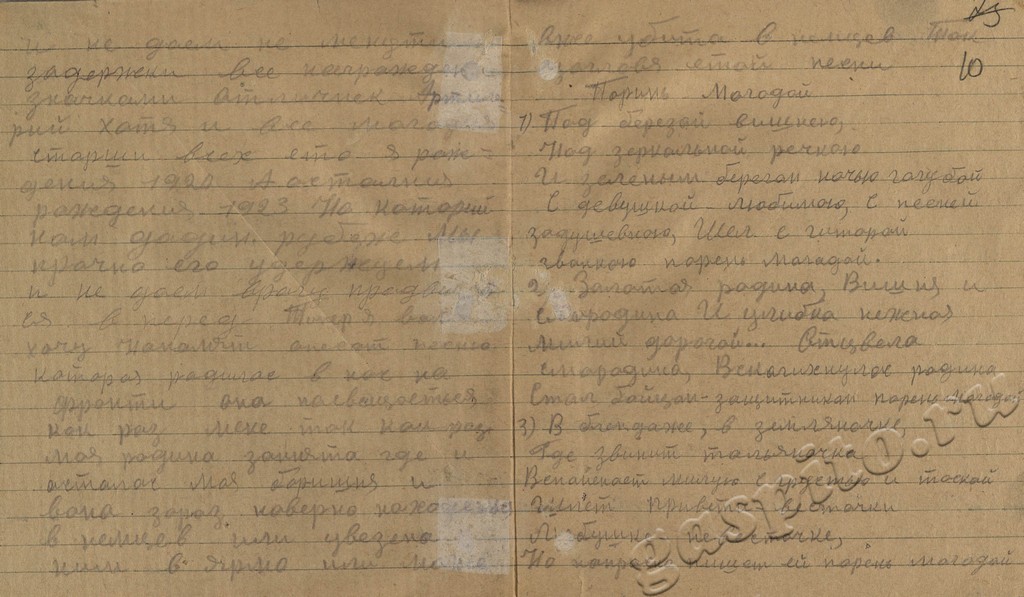 и не даем не менути
задержки все награждени
значками Атличнек Артиле
рий хотя и все молодия
старши всех ето я рож-
дения 1920 А астальния
раждения 1923 На которий
нам дадут рубеже Мы
прочно его удержуем
и не даем врагу продви
ся в перед Теперя вам
хочу написати песню
которая родилас в нас на
фронти она посвящаеться
как раз мене так как раз
моя родина занята где и
осталас моя и
вона зараз наверно находится
в немцев или увезена
ним в ярмо или може
вже убита в немцев Так
заглавя етой песни
Парень Молодой
1) Под березой вишнею,
Над зеркальной речкою
И зеленым берегам ночью голубой
С девушкой любимою, с песней
задушевною, Шел с гитарой
звонкою парень молодой.
2. Залатая родина, Вишня и
смародина И улибка нежная
милий дорогой... Отцвела
смародина, Всполихнулас родина
Стал байцам-защитникам парень молодой
3) В блендаже, в земляночке
Где звинит тальяночка
Вспаминает милую с грустью и таской
Пишет привета весточки
Любушке невесточке,
На пишет ей парень молодой
N5
10
gaspito.ru